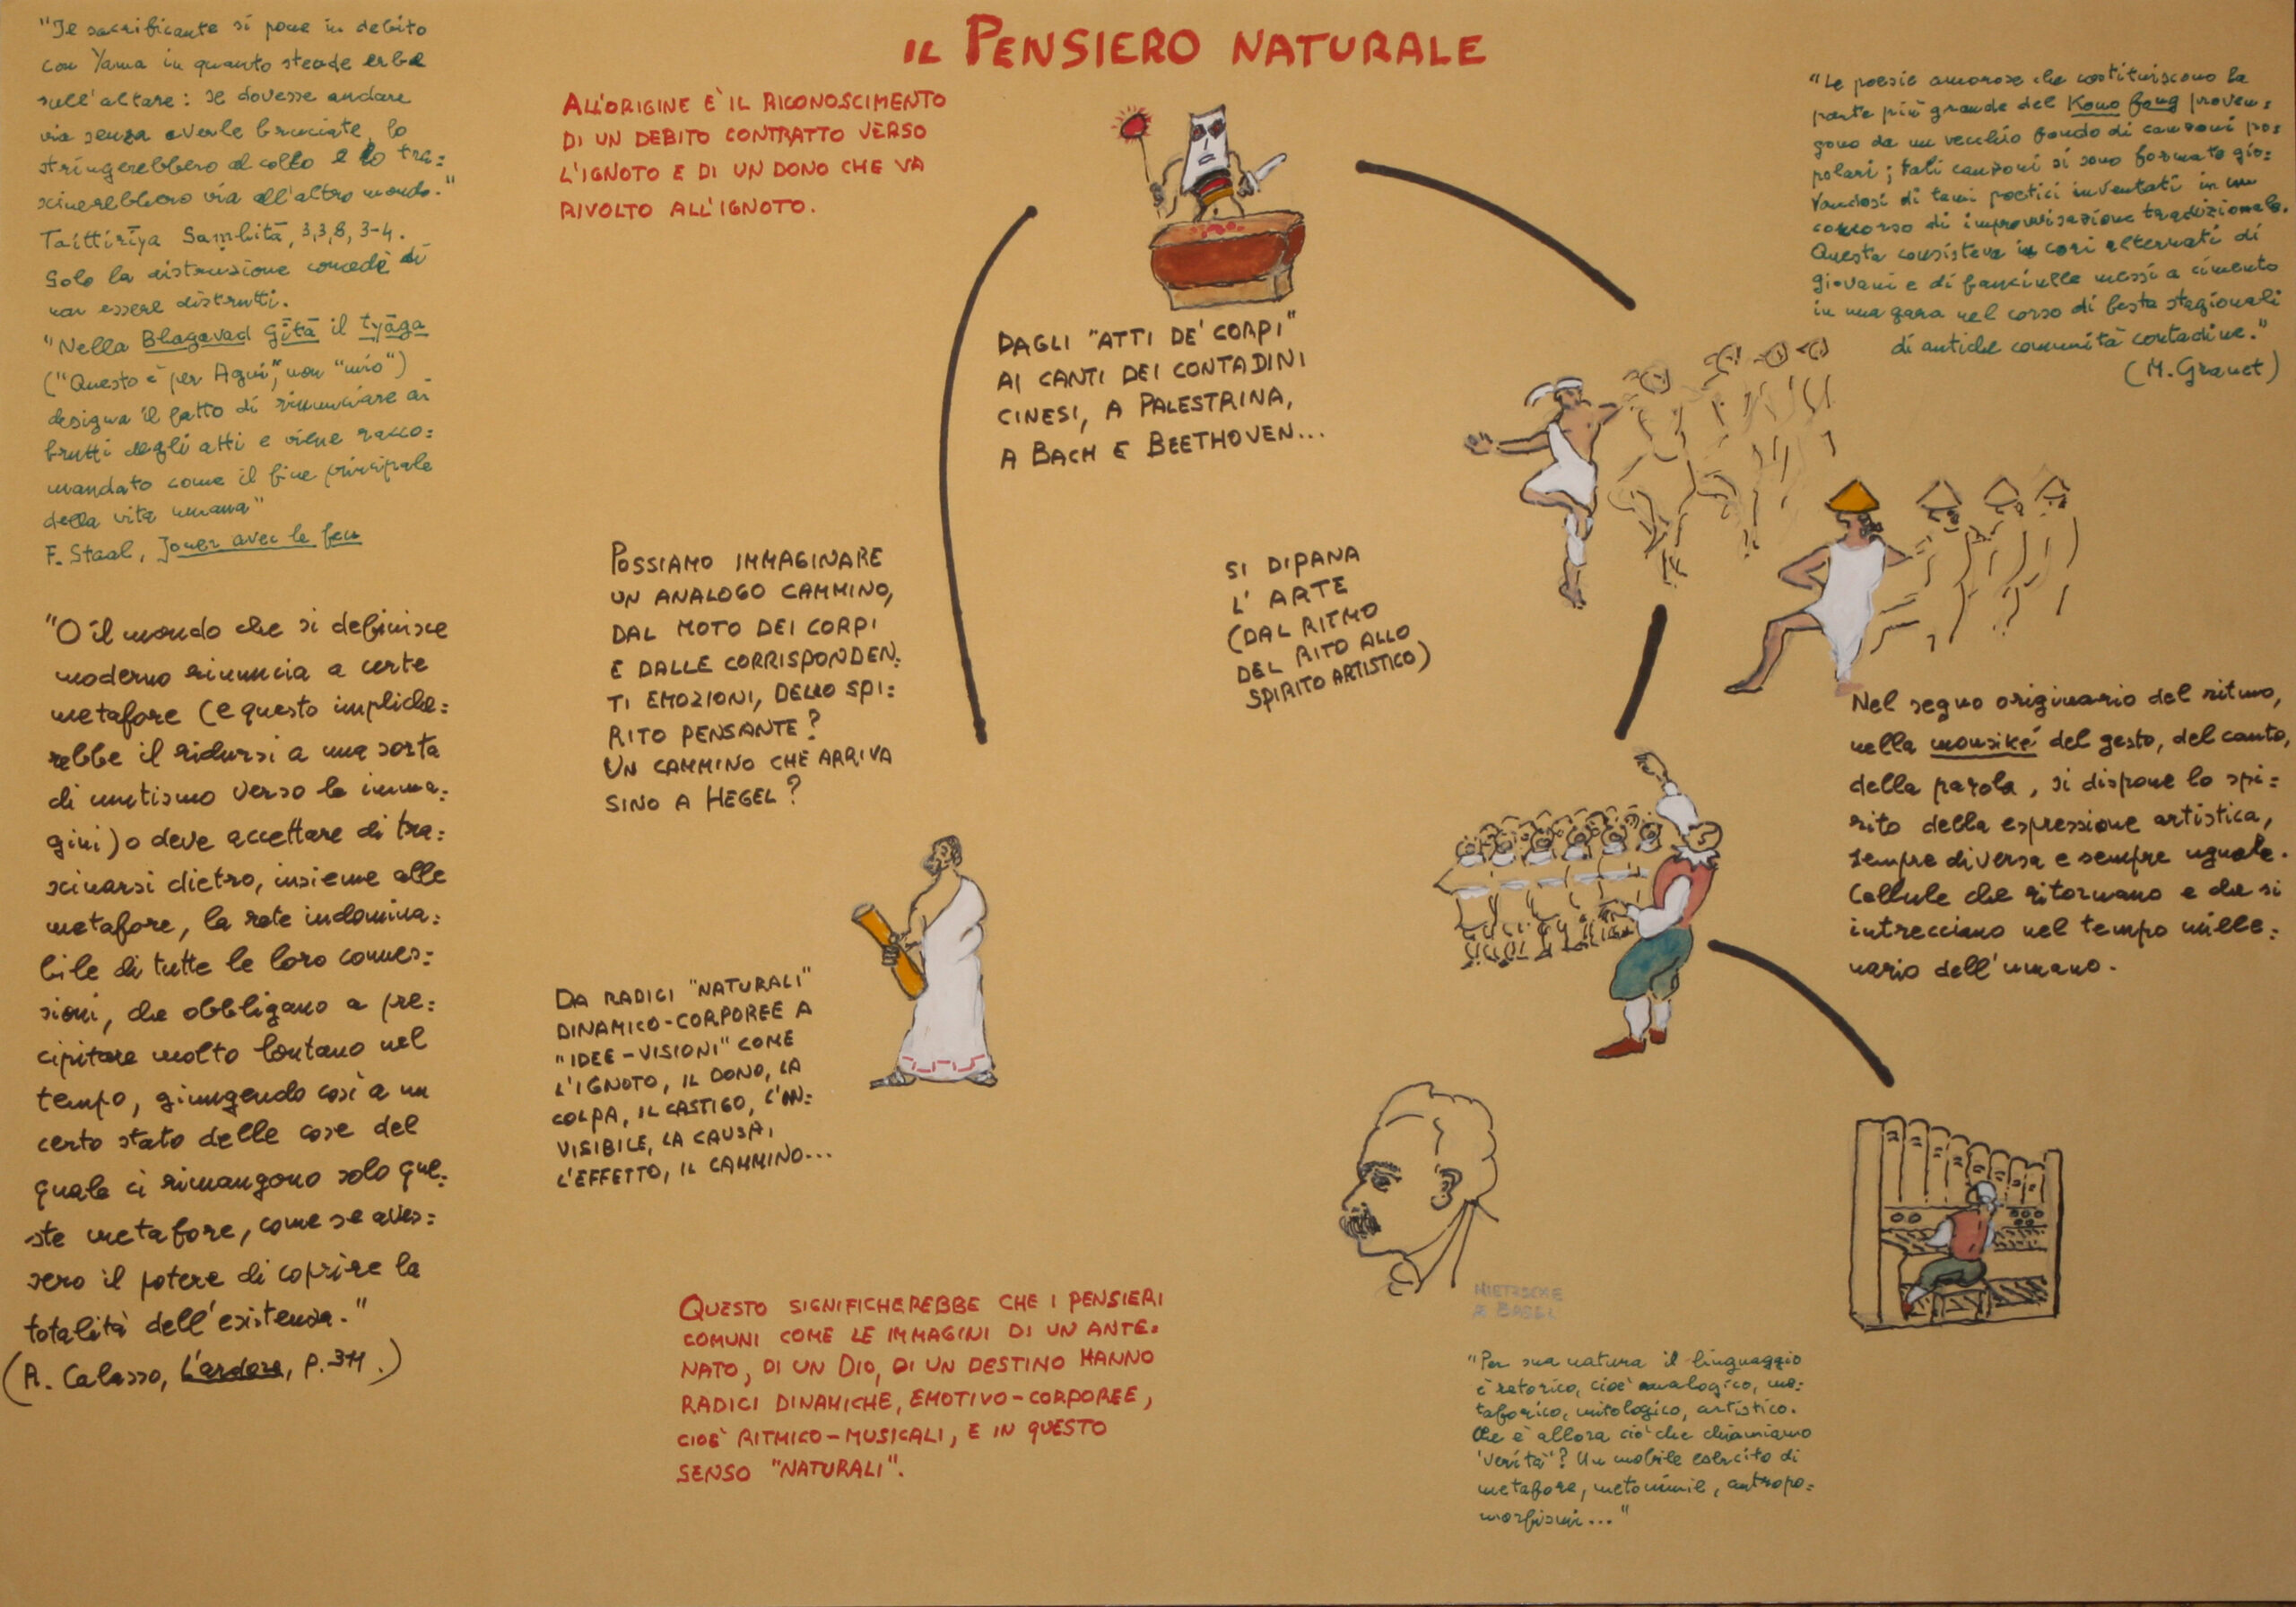 IL PENSIERO NATURALE
"Il sacrificante si pone in debito
con Yama in quanto stende erbe
sull'altare: se dovesse andare
via senza averle bruciate, lo
stringerebbero al collo e lo tra=
scinerebbero via all'altro mondo."
Taittirīya Saṃhitā, 3,3,8, 3-4.
Solo la distruzione concede di
non essere distrutti.
"Nella Bhagavad Gītā il tyāga
("Questo è per Agni", non "mio")
designa il fatto di rinunciare ai
frutti degli atti e viene racco=
mandato come il fine principale
della vita umana"
F. Staal, Jouer avec le feu
"O il mondo che si definisce
moderno rinuncia a certe
metafore (e questo impliche=
rebbe il ridursi a una sorta
di mutismo verso le imma=
gini) o deve accettare di tra=
scinarsi dietro, insieme alle
metafore, la rete indomina=
bile di tutte le loro connes=
sioni, che obbligano a pre=
cipitare molto lontano nel
tempo, giungendo così a un
certo stato delle cose del
quale ci rimangono solo que=
ste metafore, come se aves=
sero il potere di coprire la
totalità dell'esistenza."
(R. Calasso, L'ardore, p. 311.)
ALL'ORIGINE È IL RICONOSCIMENTO
DI UN DEBITO CONTRATTO VERSO
L'IGNOTO E DI UN DONO CHE VA
RIVOLTO ALL'IGNOTO.
DAGLI "ATTI DE' CORPI"
AI CANTI DEI CONTADINI
CINESI, A PALESTRINA,
A BACH E BEETHOVEN...
POSSIAMO IMMAGINARE
UN ANALOGO CAMMINO,
DAL MOTO DEI CORPI
E DALLE CORRISPONDEN=
TI EMOZIONI, DELLO SPI=
RITO PENSANTE?
UN CAMMINO CHE ARRIVA
SINO A HEGEL?
SI DIPANA
L'ARTE
(DAL RITMO
DEL RITO ALLO
SPIRITO ARTISTICO)
DA RADICI "NATURALI"
DINAMICO-CORPOREE A
"IDEE-VISIONI" COME
L'IGNOTO, IL DONO, LA
COLPA, IL CASTIGO, L'IN=
VISIBILE, LA CAUSA,
L'EFFETTO, IL CAMMINO...
QUESTO SIGNIFICHEREBBE CHE I PENSIERI
COMUNI COME LE IMMAGINI DI UN ANTE=
NATO, DI UN DIO, DI UN DESTINO HANNO
RADICI DINAMICHE, EMOTIVO-CORPOREE,
CIOÈ RITMICO-MUSICALI, E IN QUESTO
SENSO "NATURALI".
"Le poesie amorose che costituiscono la
parte più grande del Kouo fong proven=
gono da un vecchio fondo di canzoni po=
polari; tali canzoni si sono formate gio=
vandosi di temi poetici inventati in un
concorso di improvvisazione tradizionale.
Questa consisteva in cori alternati di
giovani e di fanciulle messi a cimento
in una gara nel corso di feste stagionali
di antiche comunità contadine."
(M. Granet)
Nel segno originario del ritmo,
nella mousiké del gesto, del canto,
della parola, si dispone lo spi=
rito della espressione artistica,
sempre diversa e sempre uguale.
Cellule che ritornano e che si
intrecciano nel tempo mille=
nario dell'umano.
NIETZSCHE
A BASEL
"Per sua natura il linguaggio
è retorico, cioè analogico, me=
taforico, mitologico, artistico.
Che è allora ciò che chiamiamo
'verità'? Un mobile esercito di
metafore, metonimie, antropo=
morfismi..."